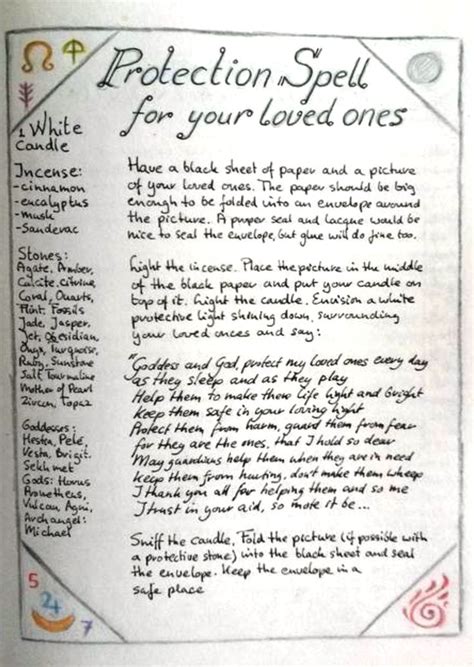 Protection Spell
for your loved ones
1 White
Candle
Incense:
-cinnamon
-eucalyptus
-musk
-Sandevac
Stones:
Agate, Amber,
Calcite, Citrine,
Coral, Quarts,
Flint, Fossils
Jade, Jasper,
Jet, Obsidian,
Onyx, Turquoise,
Ruby, Sunstone
Salt, Tourmaline
Mother of Pearl
Zircon, Topaz
Goddesses:
Hestia, Pele,
Vesta, Brigit,
Sekhmet
Gods: Horus
Prometheus,
Vulcan, Agni,
Archangel:
Michael
Have a black sheet of paper and a picture
of your loved ones. The paper should be big
enough to be folded into an envelope around
the picture. A proper seal and lacque would be
nice to seal the envelope, but glue will do fine too.
Light the incense. Place the picture in the middle
of the black paper and put your candle on
top of it. Light the candle. Envision a white
protective light shining down, surrounding
your loved onces and say:
"Goddess and God, protect my loved ones every day
as they sleep and as they play
Help them to make there life light and bright
Keep them safe in your loving light
Protect them from harm, guard them from fear
for they are the ones, that I hold so dear
May guardians help them when they are in need
Keep them from hurting, don't make them wheep
I thank you all for helping them and so me
I trust in your aid, so mote it be...
Sniff the candle, Fold the picture (if possible with
a protective stone) into the black sheet and seal
the envelope. Keep the envelope in a
safe place
5
24
7